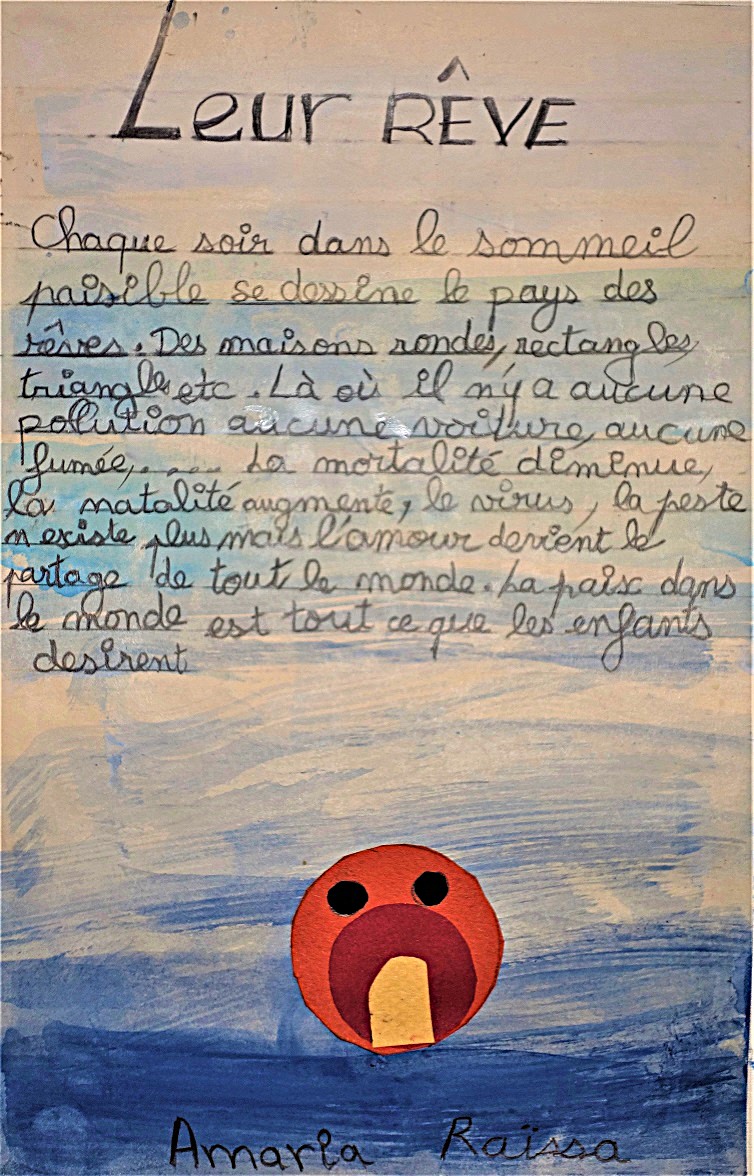 Leur RÊVE
Chaque soir dans le sommeil
paisible se dessine le pays des
rêves. Des maisons rondes, rectangles,
triangles etc. Là où il n'y a aucune
polution aucune voiture, aucune
fumée,..... La mortalité diminue,
la natalité augmente, le virus, la peste
n'existe plus mais l'amour devient le
partage de tout le monde. La paix dans
le monde est tout ce que les enfants
desirent
Amaria Raïssa